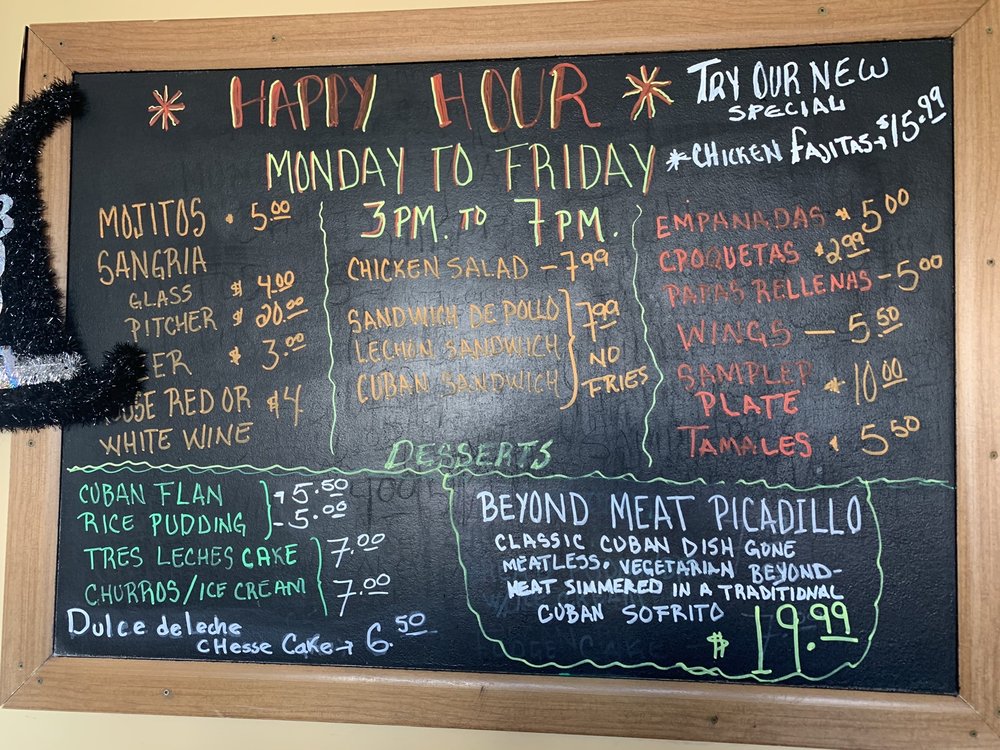 * HAPPY HOUR *
TRY OUR NEW
SPECIAL
* CHICKEN FAJITAS → $15.99
MONDAY TO FRIDAY
3PM. TO 7PM.
MOJITOS $ 5.00
SANGRIA
GLASS $ 4.00
PITCHER $ 20.00
$ 3.00
RED OR $4
WHITE WINE
CHICKEN SALAD - 7.99
SANDWICH DE POLLO 7.99
LECHON SANDWICH NO
CUBAN SANDWICH FRIES
EMPANADAS $ 5.00
CROQUETAS $2.99
PAPAS RELLENAS - 5.00
WINGS - 5.50
SAMPLER
PLATE $ 10.00
TAMALES $ 5.50
DESSERTS
CUBAN FLAN $5.50
RICE PUDDING - 5.00
TRES LECHES CAKE 7.00
CHURROS/ICE CREAM 7.00
Dulce de leche
CHesse Cake → 6.50
BEYOND MEAT PICADILLO
CLASSIC CUBAN DISH GONE
MEATLESS. VEGETARIAN BEYOND-
MEAT SIMMERED IN A TRADITIONAL
CUBAN SOFRITO
$ 19.99